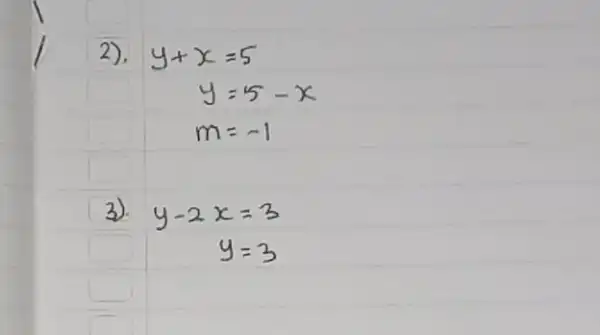 2). y + x = 5
y = 5 - x
m = -1
3). y - 2x = 3
y = 3